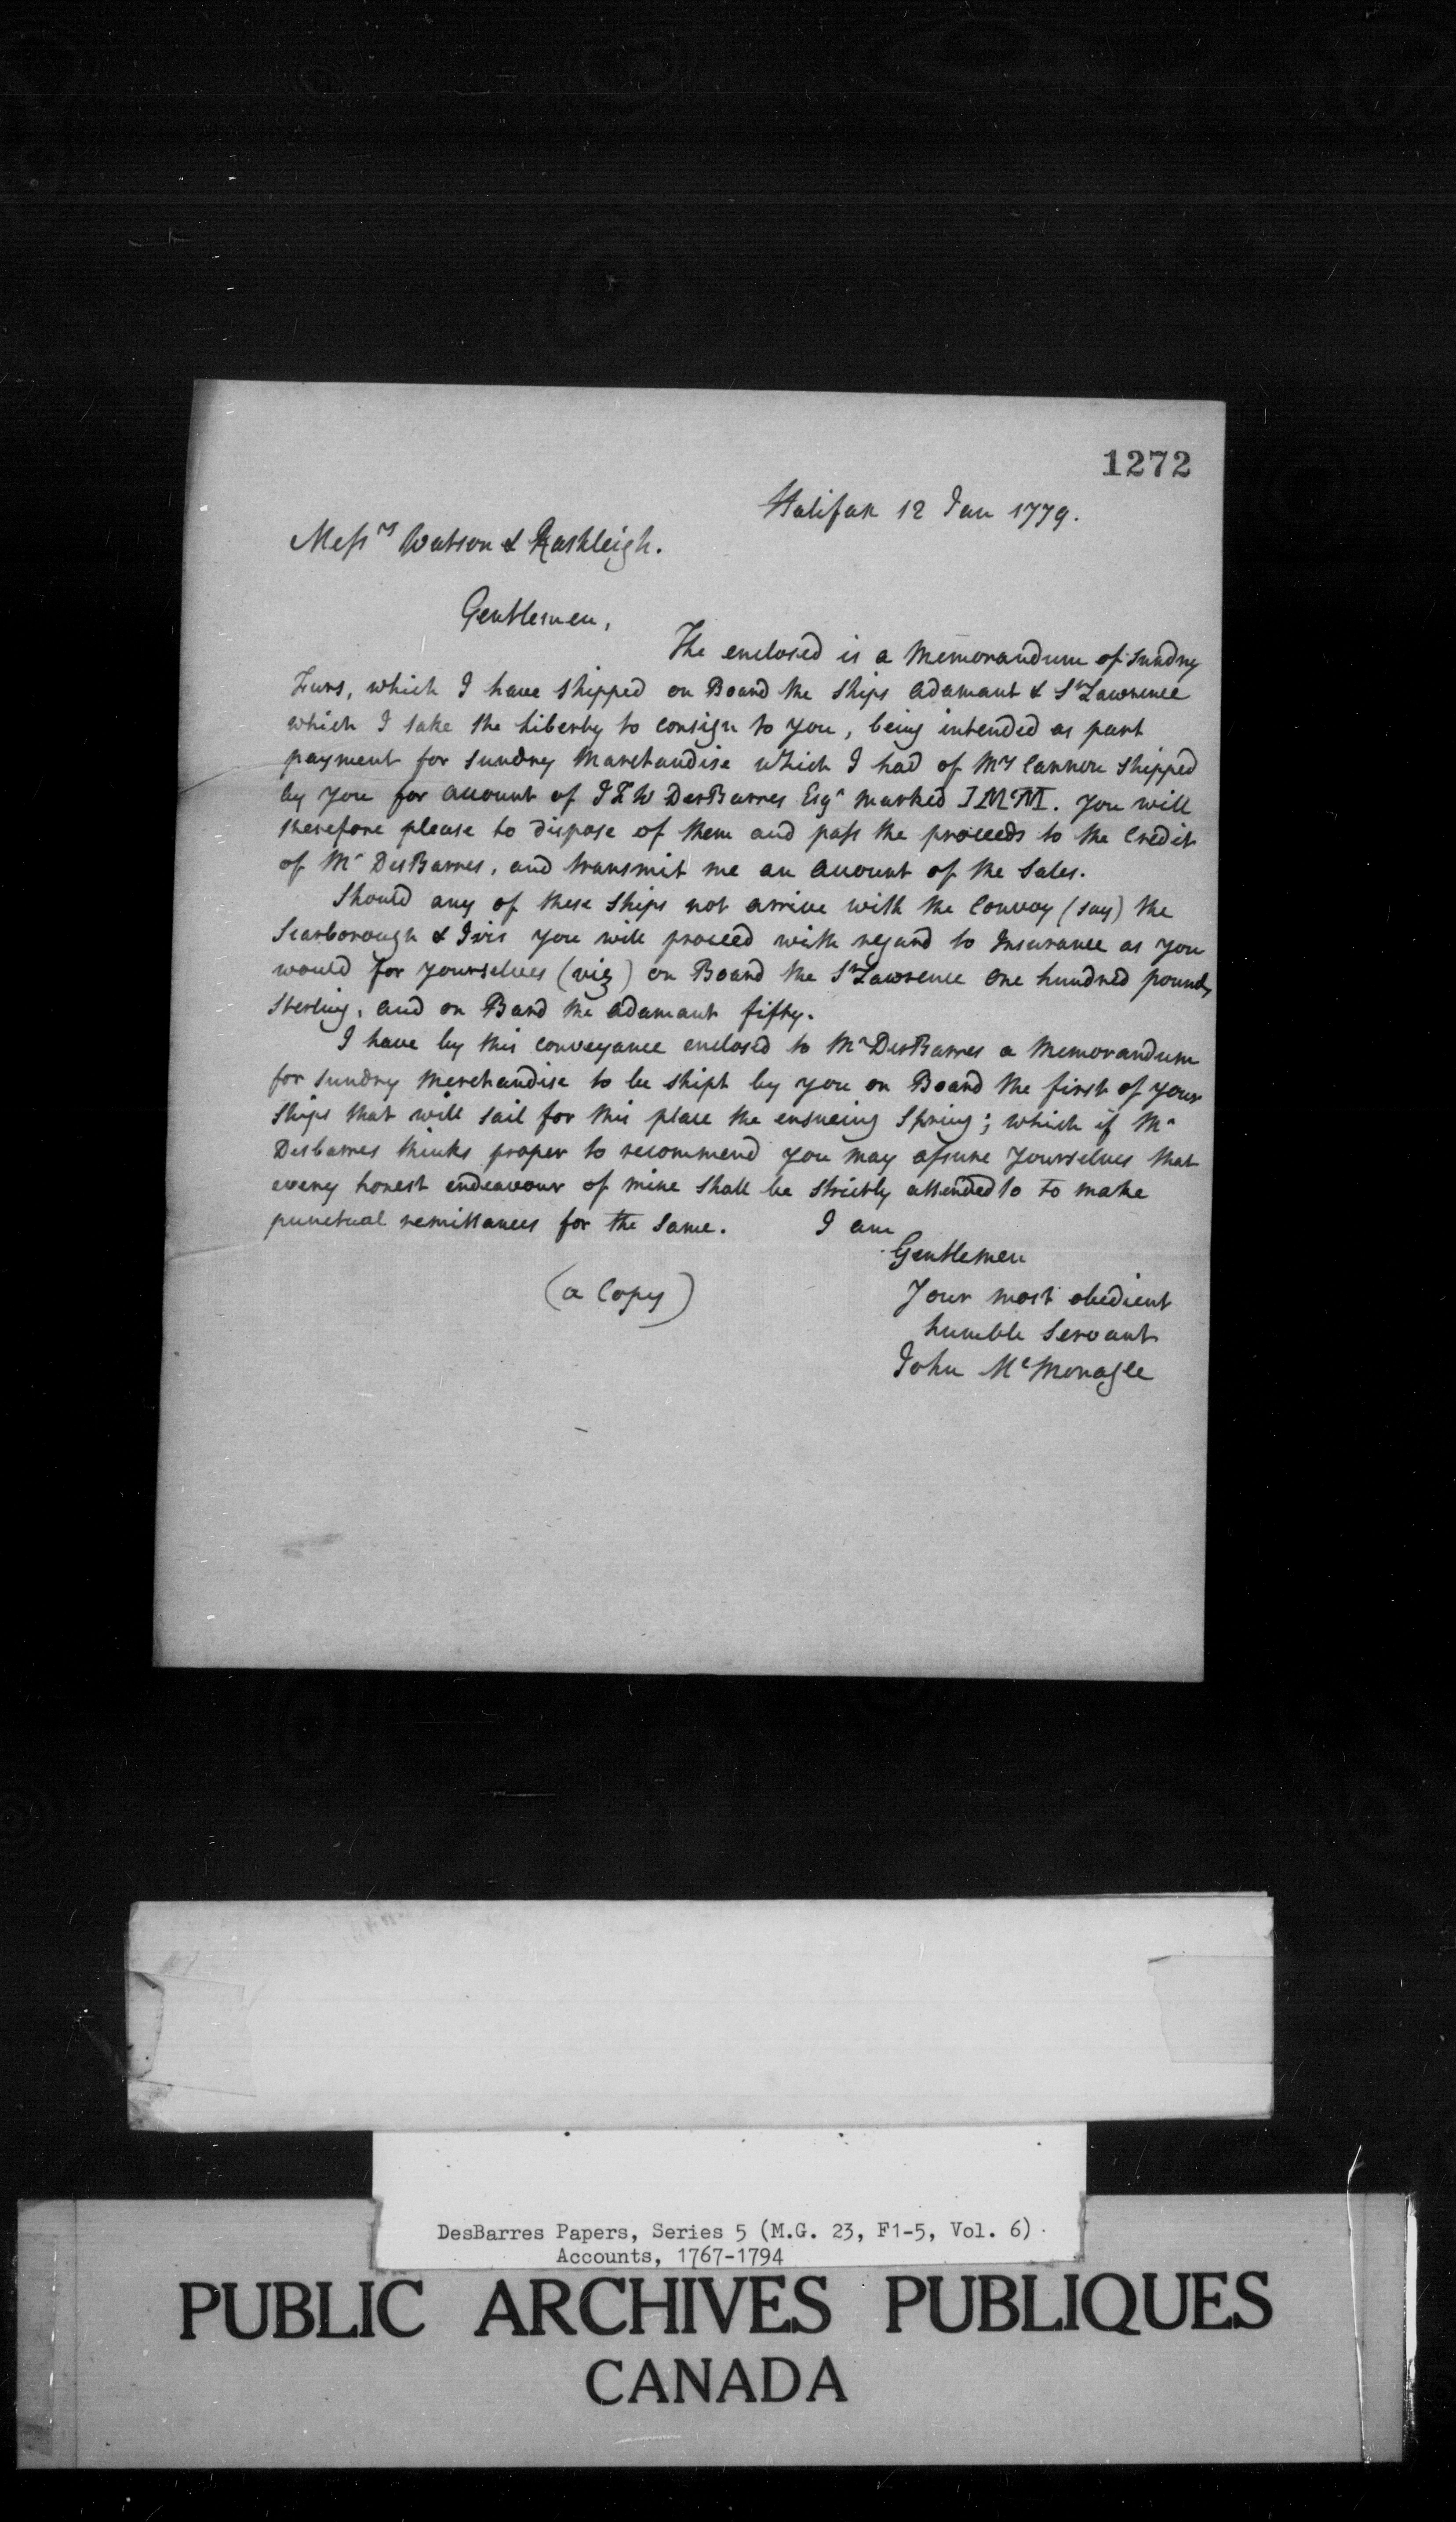 1272
Halifax 12 Jan 1779.
Messrs Watson & Rashleigh.
Gentlemen,
The enclosed is a Memorandum of Sundry
Furs, which I have shipped on Board the Ships Adamant & St Lawrence
which I take the liberty to consign to you, being intended as part
payment for sundry Marchandise which I had of Mrs Cannon shipped
by you for account of J F W DesBarres Esqr marked J McM. You will
therefore please to dispose of them and pass the proceeds to the Credit
of Mr DesBarres, and transmit me an account of the Sales.
Should any of these Ships not arrive with the Convoy (say) the
Scarborough & Iris you will proceed with regard to Insurance as you
would for yourselves (viz) on Board the St Lawrence one hundred pounds
Sterling, and on Bard the Adamant fifty.
I have by this conveyance enclosed to Mr DesBarres a Memorandum
for sundry Merchandise to be shipt by you on Board the first of your
Ships that will sail for this place the ensueing Spring; which if Mr
Desbarres thinks proper to recommend you may assure yourselves that
every honest endeavour of mine shall be strictly attended to to make
punctual remittances for the same. I am
Gentlemen
(a Copy)
Your most obedient
humble Servant
John McMonagle
DesBarres Papers, Series 5 (M.G. 23, F1-5, Vol. 6)
Accounts, 1767-1794
PUBLIC ARCHIVES PUBLIQUES
CANADA